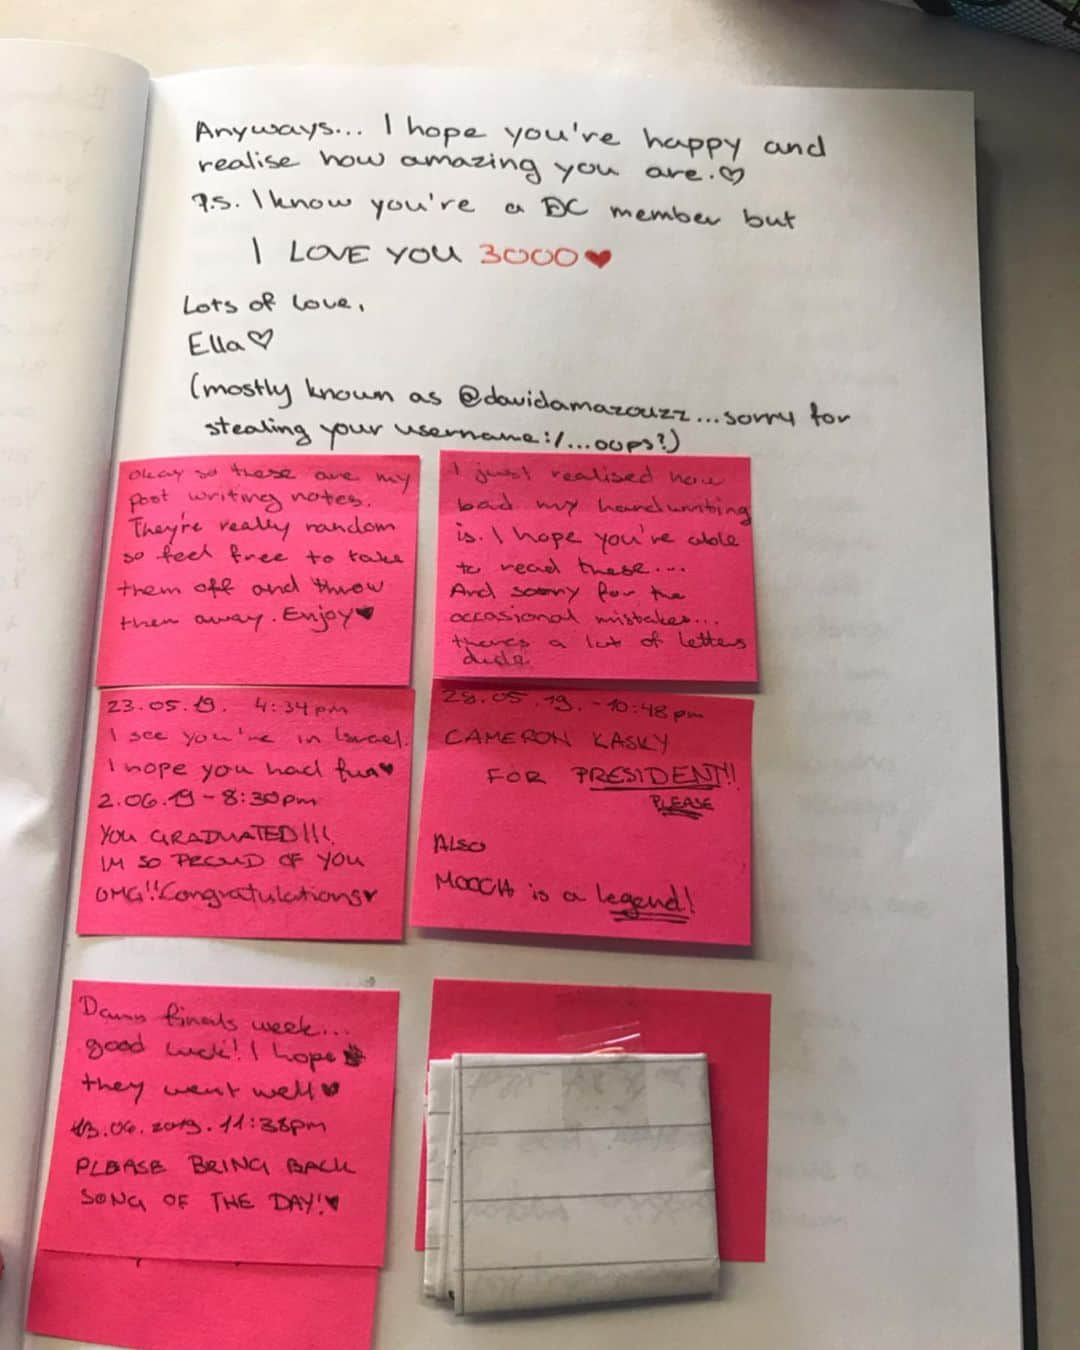 Anyways... I hope you're happy and
realise how amazing you are.♡
P.S. I know you're a DC member but
I LOVE YOU 3000♥
Lots of love,
Ella♡
(mostly known as @davidamazouzz...sorry for
stealing your username:/...oops?)
Okay so these are my
post writing notes.
They're really random
so feel free to take
them off and throw
them away. Enjoy♥
I just realised how
bad my handwriting
is. I hope you're able
to read these....
And sorry for the
occasional mistakes...
theres a lot of letters
dude.
23.05.19. 4:34pm
I see you're in Israel.
I hope you had fun♥
2.06.19-8:30pm
YOU GRADUATED!!!
IM SO PROUD OF YOU
OMG!!Congratulations♥
28.05.19.-10:48pm
CAMERON KASKY
FOR PRESIDENT!!
PLEASE
ALSO
MOOCH is a legend!
Damn finals week...
good luck! I hope
they went well♥
13.06.2019.11:38pm
PLEASE BRING BACK
SONG OF THE DAY!♥